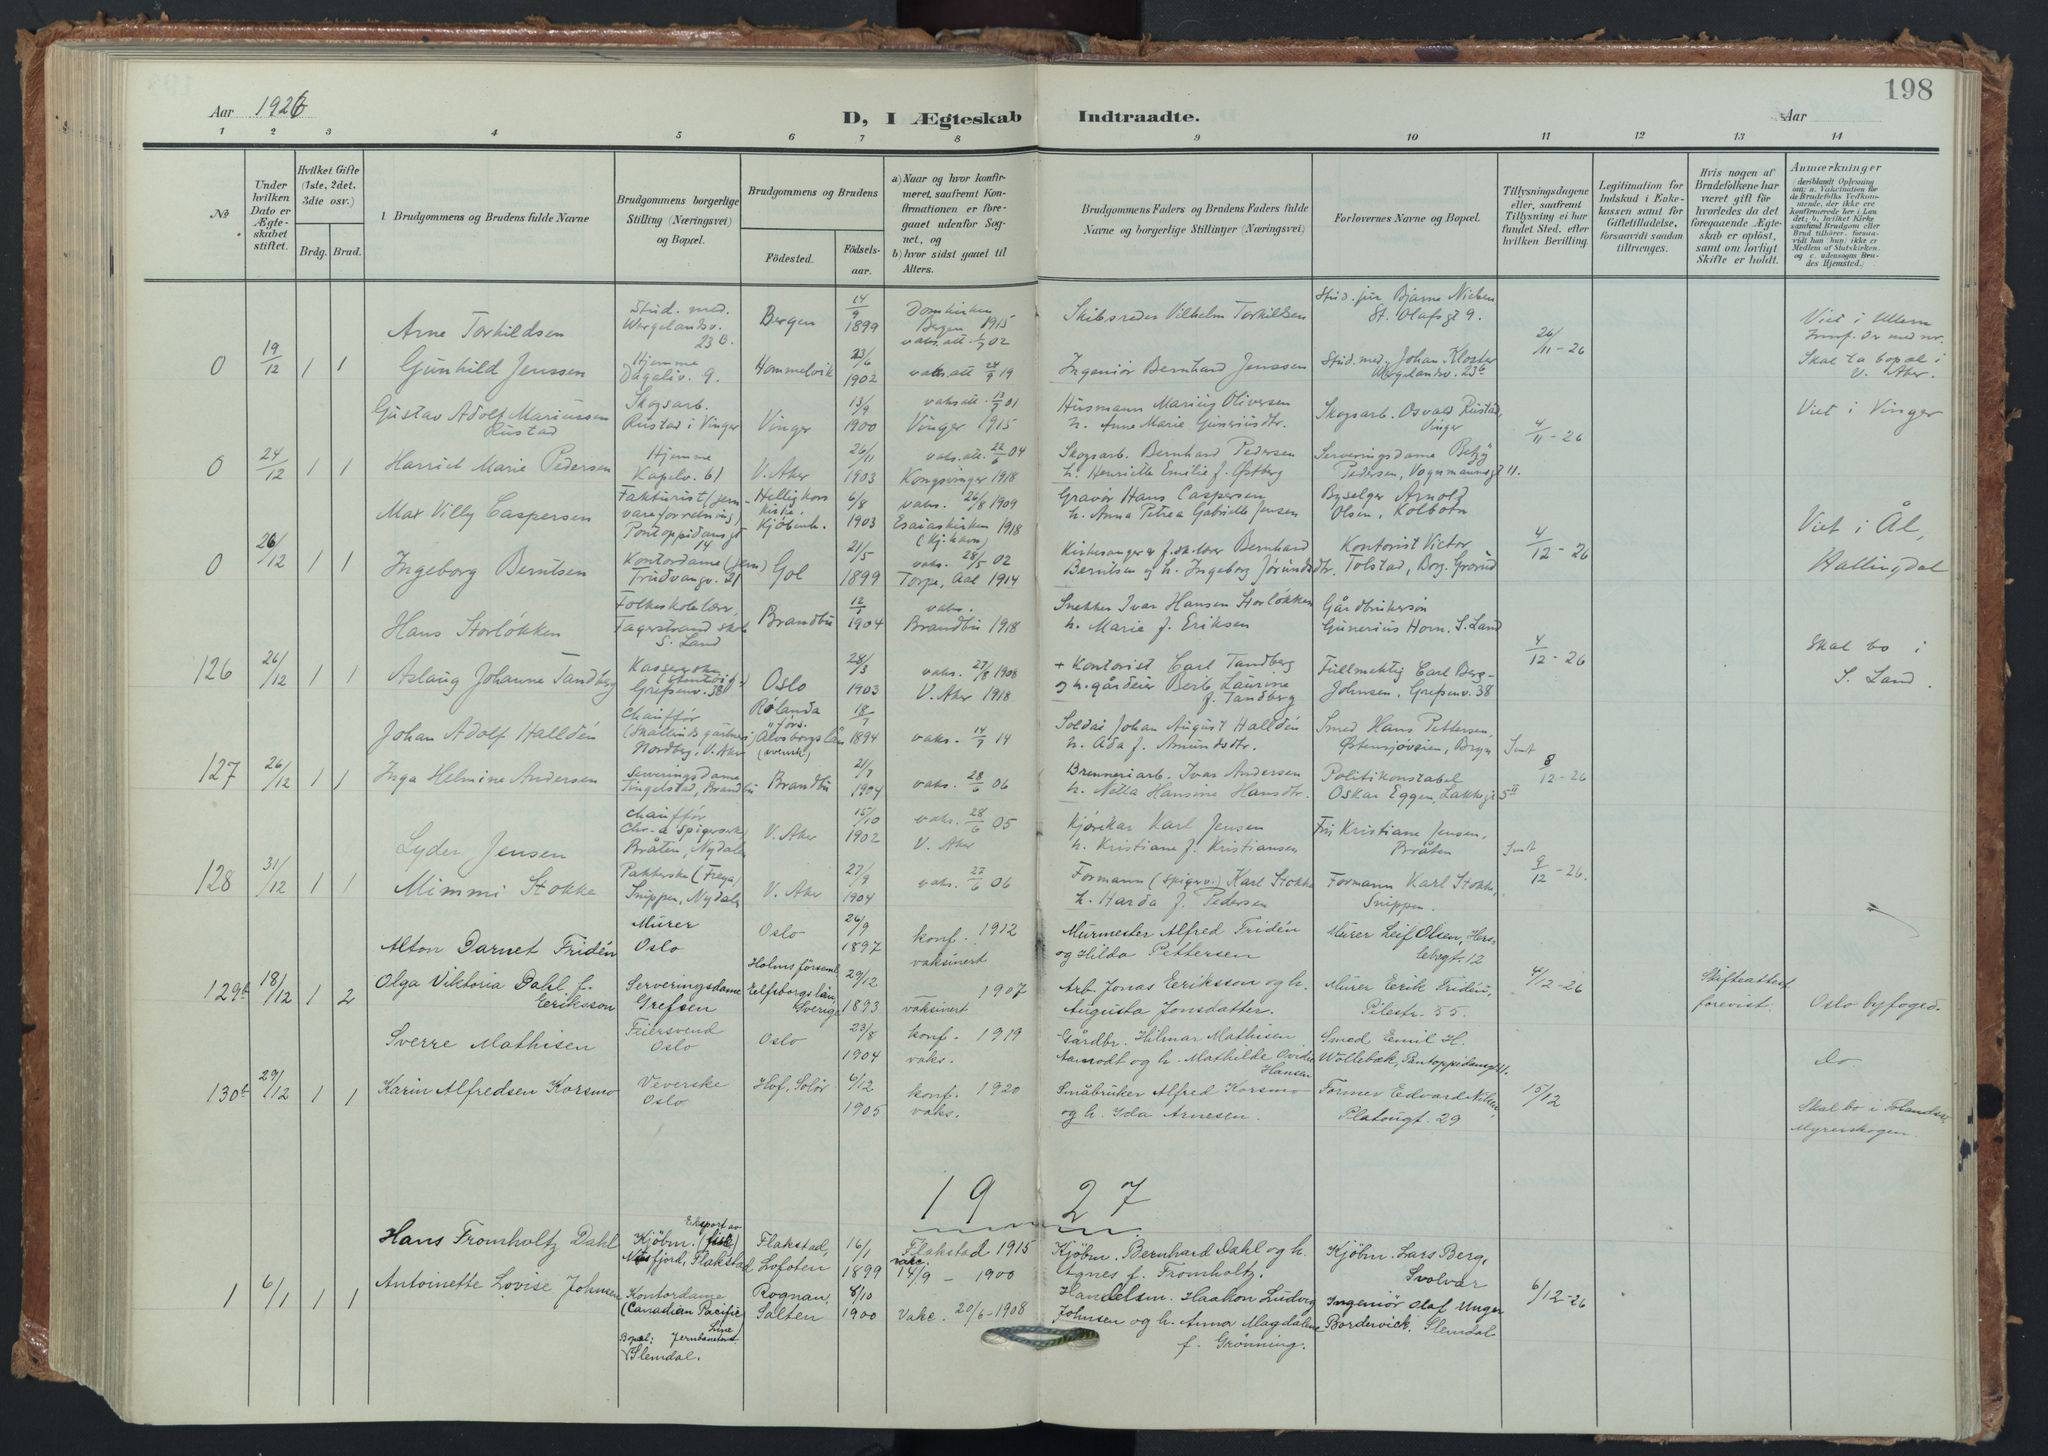 198
Aar 1926
D, I Ægteskab Indtraadte.
Aar
1 2 3 4 5 6 7 8 9 10 11 12 13 14
No
Under hvilken Dato er Ægteskabet stiftet.
Hvilket Gifte (1ste, 2det, 3die osv.)
Brdg. Brud.
1 Brudgommens og Brudens fulde Navne
Brudgommens borgerlige Stilling (Næringsvei) og Bopæl.
Brudgommens og Brudens
Fødested.
Fødselsaar.
a) Naar og hvor konfirmeret, saafremt Konfirmationen er foregaaet udenfor Sognet, og
b) hvor sidst gaaet til Alters.
Brudgommens Faders og Brudens Faders fulde Navne og borgerlige Stillinger (Næringsvei)
Forlovernes Navne og Bopæl.
Tillysningsdagene eller, saafremt Tillysning ei har fundet Sted, efter hvilken Bevilling.
Legitimation for Indskud i Enkekassen samt for Giftetilladelse, forsaavidt saadan tiltrænges.
Hvis nogen af Brudefolkene har været gift før hvorledes da det foregaaende Ægteskab er opløst, samt om lovligt Skifte er holdt.
Anmærkninger
Arne Torkildsen
Stud. med. Wergelandsv. 23 B.
Bergen
14/9 1899
Domkirken Bergen 1915
vaks. att. 02
Skibsreder Vilhelm Torkildsen
Stud. jur Bjarne Nielsen St. Olafsgt 9.
26/11-26
Viet i Ullern
0 19/12 1 1
Gunhild Jenssen
Hjemme Dagaliv. 9.
Hommelvik
23/6 1902
vaks att 24/9 19
Ingeniør Bernhard Jenssen
Stud. med. Johan Kloster Wergelandsv. 23b
Skal ta bopæl i V. Aker.
Gustav Adolf Mariussen Rustad
Skogsarb. Rustad i Vinger
Vinger
13/9 1900
vaks att. 01
Vinger 1915
Husmann Marius Oliversen h. Anne Marie Guneriusdtr.
Skogsarb. Osvald Rustad, Vinger
4/11-26
Viet i Vinger
0 24/12 1 1
Harriet Marie Pedersen
Hjemme Kapelv. 61
V. Aker
26/11 1903
vaks. att. 22/6 04
Kongsvinger 1918
Skogsarb. Bernhard Pedersen h. Henriette Emilie f. Østberg
Serveringsdame Betzy Pedersen, Vognmannsgt 11.
Max Villy Caspersen
Fakturist (jernvareforretning) Pontoppidansgt 14
Helligkors kirke, Kjøbenh.
6/8 1903
vaks. 26/8 1909
Esaiaskirken 1918 (Kj.havn)
Gravør Hans Caspersen h. Anna Petrea Gabrielle Jensen
Byselger Arnold Olsen, Kolbotn
4/12-26
Viet i Ål, Hallingdal
0 26/12 1 1
Ingeborg Berntsen
Kontordame (jern) Trudvangv. 21
Gol
21/5 1899
vaks. 28/5 02
Torpe, Aal 1914
Kirkesanger & f. sk. lærer Bernhard Berntsen og h. Ingeborg Jørundsdtr.
Kontorist Victor Tolstad, Borg. Grorud
Hans Storløkken
Folkeskolelærer, Fagerstrand skole S. Land
Brandbu
12/1 1904
vaks. Brandbu 1918
Snekker Ivar Hansen Storløkken h. Marie f. Eriksen
Gårdbrukersøn Gunerius Horn. S. Land
4/12-26
Skal bo i S. Land
126 26/12 1 1
Aslaug Johanne Tandberg
Grefsenv. 38
Oslo
28/3 1903
vaks. 27/8 1908
V. Aker 1918
+ Kontorist Carl Tandberg og h. gårdeier Berit Laurine f. Tandberg
Fullmektig Carl Berg-Johnsen, Grefsenv. 38
Johan Adolf Halldén
Chauffør Nordberg, V. Aker
Rolanda förs. Älvsborgs län (svensk)
18/7 1894
vaks. 14/9 14
Soldat Johan August Halldén h. Ada f. Amundsdtr.
Smed Hans Pettersen, Østensjøveien, Bryn
8/12-26
127 26/12 1 1
Inga Helmine Andersen
Serveringsdame Tingelstad, Brandbu
Brandbu
21/7 1904
vaks. 28/6 06
Brenneriarb. Ivar Andersen h. Netta Hansine Hansdtr.
Politikonstabel Oskar Eggen, Lakkegt 5 II
Lyder Jensen
Chauffør Chr-a Spigerverk Bråten, Nydalen
V. Aker
15/10 1902
vaks. 28/6 05
V. Aker
Kjørekar Karl Jensen h. Kristiane f. Kristiansen
Fru Kristiane Jensen, Bråten
9/12-26.
128 31/12 1 1
Mimmi Stokke
Pakkerske (Freya) Snippen, Nydalen
V. Aker
27/9 1904
vaks. 27/6 06
Formann (spigerv.) Karl Stokke h. Harda f. Pedersen
Formann Karl Stokke, Snippen.
Alton Darnet Fridén
Murer Oslo
Oslo
26/9 1897
konf. 1912 vaksinert
Murmester Alfred Fridén og Hilda Pettersen
Murer Leif Olsen, Herslebsgt. 12
4/12-26
129b 18/12 1 2
Olga Viktoria Dahl f. Eriksson
Serveringsdame Grefsen
Holms församl. Elfsborgs län, Sverige
29/12 1893
1907 vaksinert
Arb. Jonas Eriksson og h. Augusta Jonsdatter.
Murer Erik Fridén, Pilestr. 55.
Skifteattest forevist.
Oslo byfoged.
Sverre Mathisen
Feiersvend Oslo
Oslo
23/8 1904
konf. 1919 vaks.
Gårdbr. Hilmar Mathisen Aamodt og h. Mathilde Ovidia Hansen
Smed Emil H. Wollebæk, Pontoppidansgt 11.
Do.
130b 29/12 1 1
Karin Alfredsen Korsmo
Veverske Oslo
Hof, Solør
6/12 1905
konf. 1920 vaks.
Småbruker Alfred Korsmo og h. Ida Arnesen.
Former Edvard Nilsen, Platougt. 29
15/12
Myrerskogen.
1927
Hans Fromholtz Dahl
Kjøbm. (Eksport av fisk) Nusfjord, Flakstad
Flakstad, Lofoten
16/1 1899
Flakstad 1915
vakc. 14/9 - 1900
Kjøbm. Bernhard Dahl og h. Agnes f. Fromholtz.
Kjøbm. Lars Berg, Svolvær
6/12-26
1 6/1 1 1
Antoinette Lovise Johnsen
Kontordame (Canadian Pacific Line) Bopæl: Slemdal.
Rognan, Salten
8/10 1900
Vakc. 20/6-1908
Handelsm. Haakon Ludvig Johnsen og h. Anna Magdalene f. Grønning.
Ingeniør Olaf Unger Bordewick, Slemdal